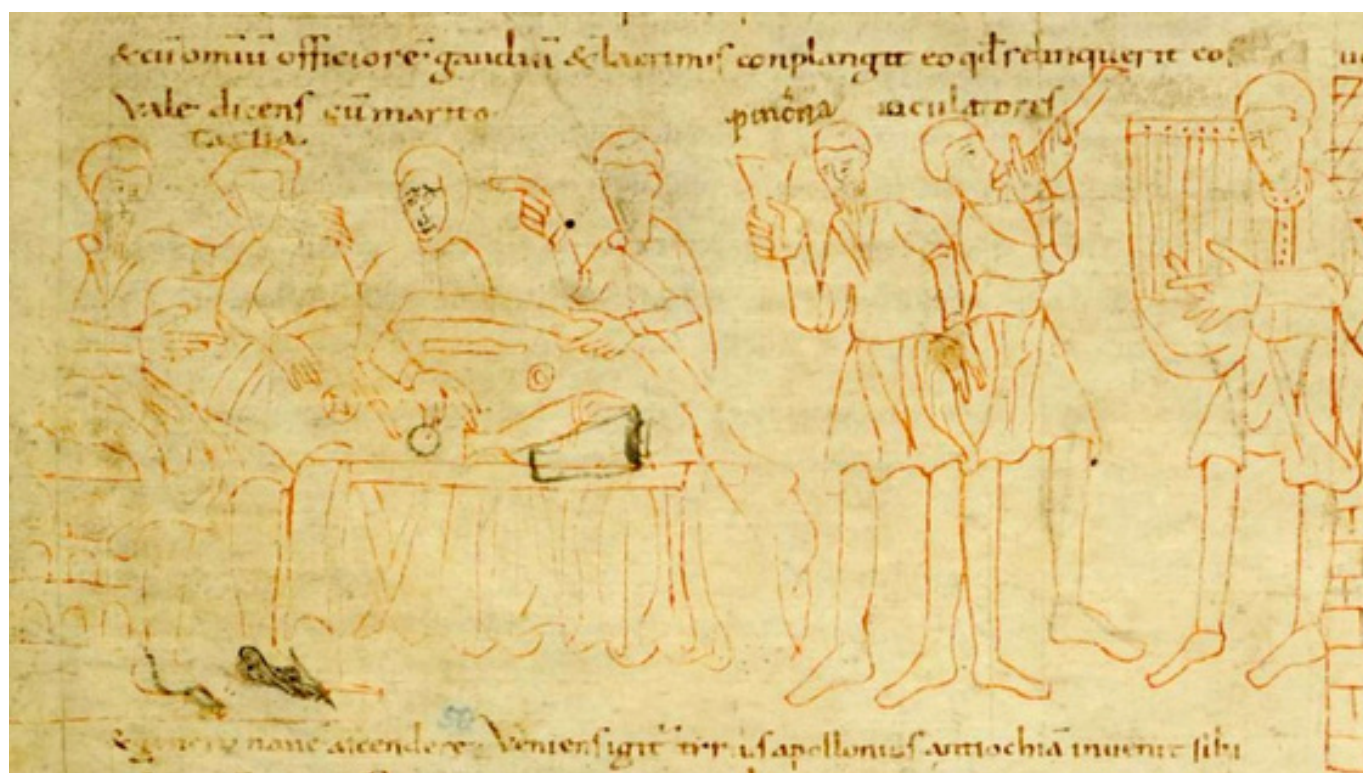 & cū omīū officiorē gaudiū & lacrimis conplangit eo qd relinquerit eo
Vale dicens cū marito
pincerna iaculatores
50
& genero nave ascendere Veniens igit tirius apollonius antiochiā invenit sibi